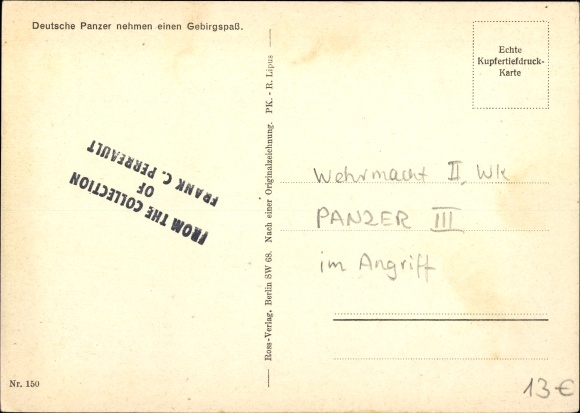 Deutsche Panzer nehmen einen Gebirgspaß.
Echte
Kupfertiefdruck-
Karte
FROM THE COLLECTION
OF
FRANK C. PERREAULT
Ross-Verlag, Berlin SW 68. Nach einer Originalzeichnung. PK. - R. Lipus
Wehrmacht II. Wk
PANZER III
im Angriff
Nr. 150
13€